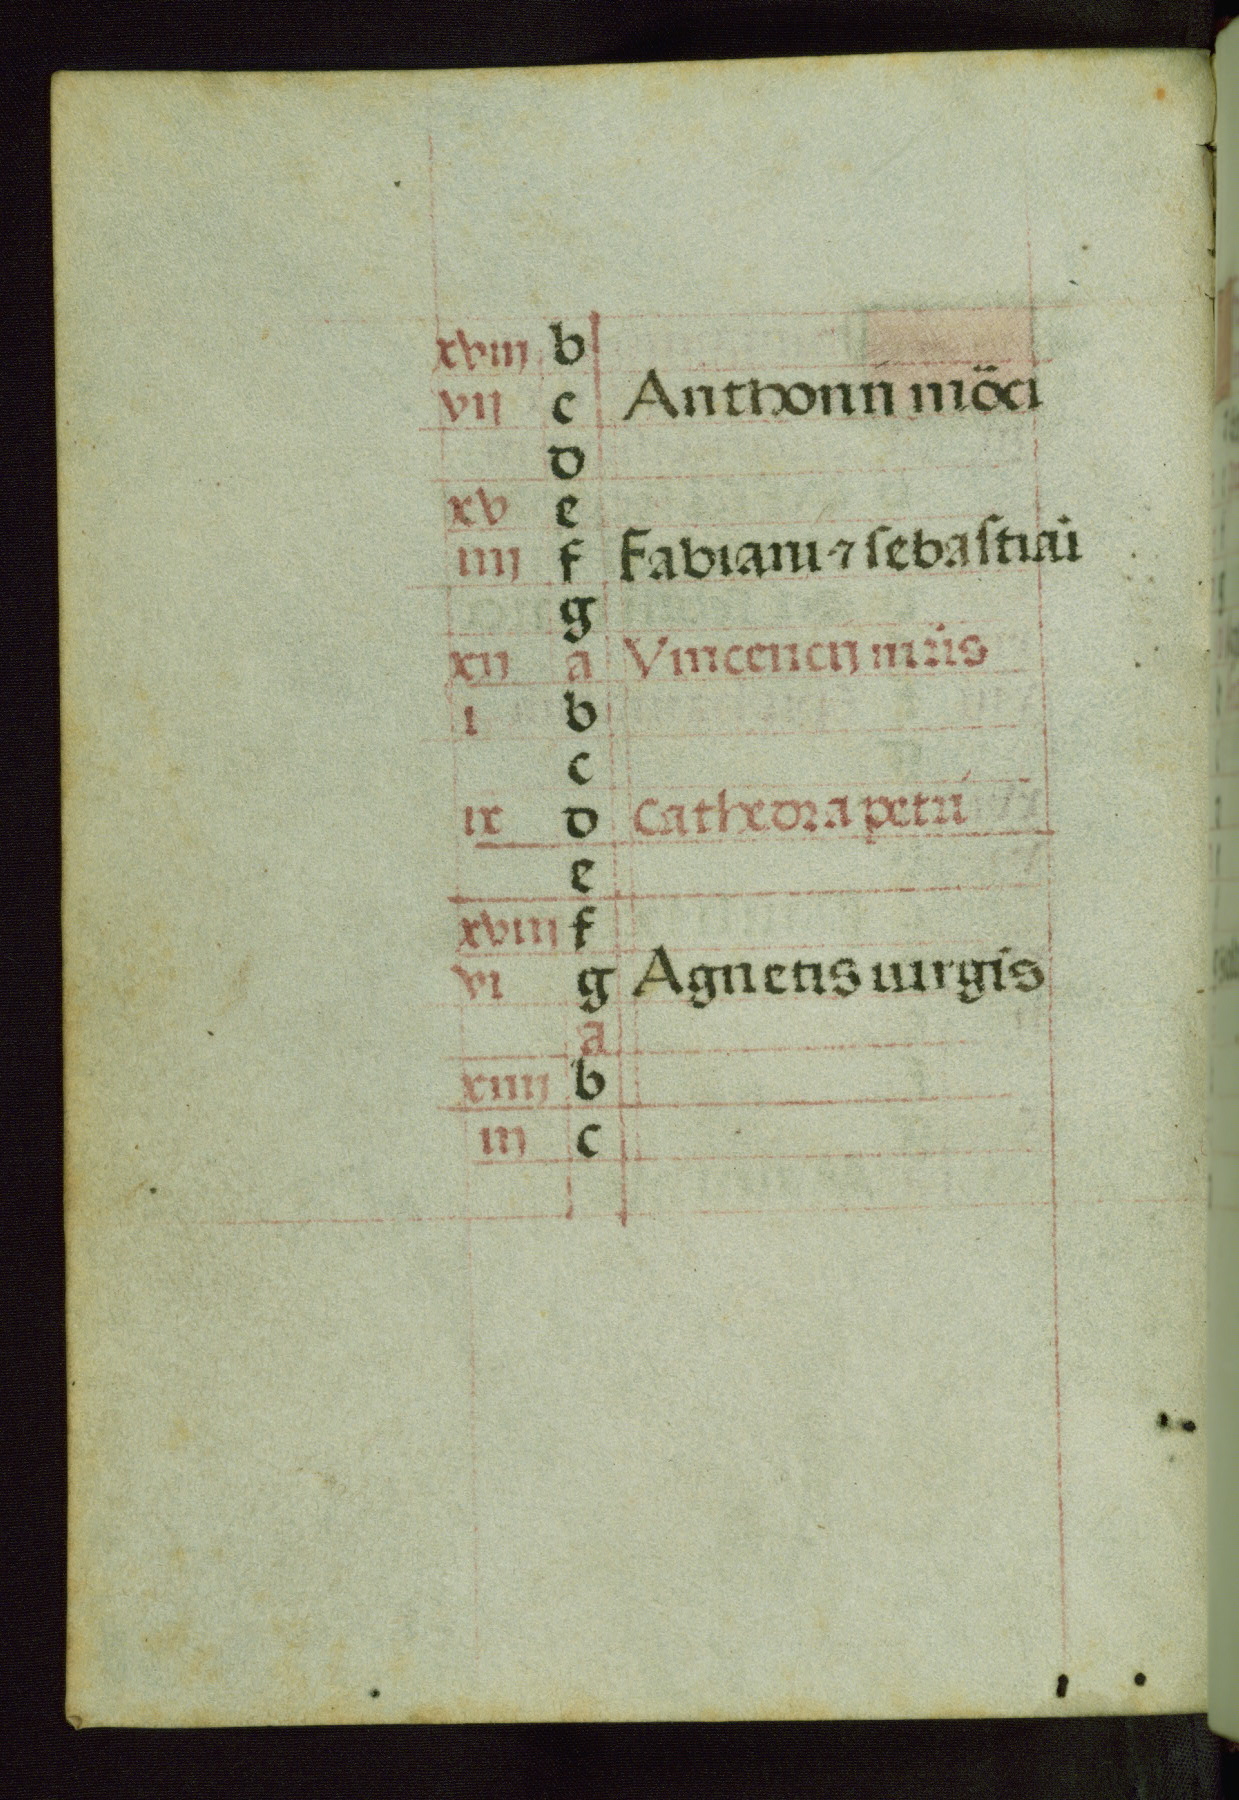 xviij b
vij c Anthonii möci
d
xv e
iiij f Fabiani ⁊ sebastiãi
g
xij a Vincencij mr̃is
i b
c
ix d Cathedra petri
e
xviij f
vi g Agnetis uirgĩs
a
xiiij b
iij c